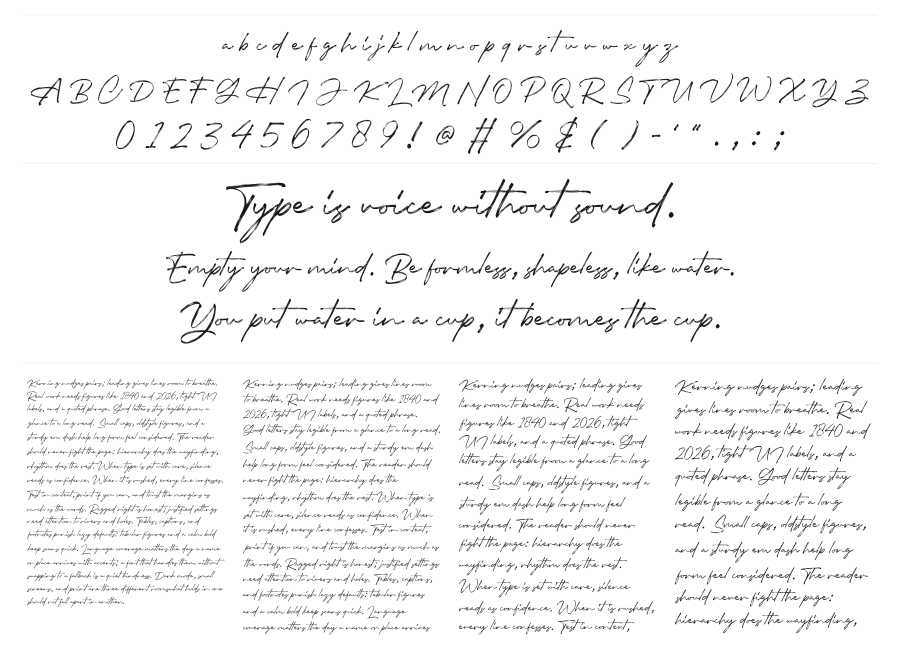 a b c d e f g h i j k l m n o p q r s t u v w x y z
A B C D E F G H I J K L M N O P Q R S T U V W X Y Z
0 1 2 3 4 5 6 7 8 9 ! @ # % & ( ) - ' " . , : ;
Type is voice without sound.
Empty your mind. Be formless, shapeless, like water.
You put water in a cup, it becomes the cup.
Kerning nudges pairs; leading gives lines room to breathe.
Real work needs figures like 1840 and 2026, tight UI
labels, and a quoted phrase. Good letters stay legible from a
glance to a long read. Small caps, oldstyle figures, and a
sturdy em dash help long form feel considered. The reader
should never fight the page: hierarchy does the wayfinding,
rhythm does the rest. When type is set with care, silence
reads as confidence. When it is rushed, every line confesses.
Test in context, print if you can, and trust the margins as
much as the words. Ragged right is honest; justified settings
need attention to rivers and holes. Tables, captions, and
footnotes punish lazy defaults; tabular figures and a calm bold
keep scans quick. Language coverage matters the day a name
or place arrives with accents; a font that handles them without
swapping to a fallback is a quiet kindness. Dark mode, small
screens, and print are three different rooms
should not fall apart in another.
Kerning nudges pairs; leading gives lines room
to breathe. Real work needs figures like 1840 and
2026, tight UI labels, and a quoted phrase.
Good letters stay legible from a glance to a long read.
Small caps, oldstyle figures, and a sturdy em dash
help long form feel considered. The reader should
never fight the page: hierarchy does the
wayfinding, rhythm does the rest. When type is
set with care, silence reads as confidence. When
it is rushed, every line confesses. Test in context,
print if you can, and trust the margins as much as
the words. Ragged right is honest; justified settings
need attention to rivers and holes. Tables, captions,
and footnotes punish lazy defaults; tabular figures
and a calm bold keep scans quick. Language
coverage matters the day a name or place arrives
Kerning nudges pairs; leading gives
lines room to breathe. Real work needs
figures like 1840 and 2026, tight
UI labels, and a quoted phrase. Good
letters stay legible from a glance to a long
read. Small caps, oldstyle figures, and a
sturdy em dash help long form feel
considered. The reader should never
fight the page: hierarchy does the
wayfinding, rhythm does the rest.
When type is set with care, silence
reads as confidence. When it is rushed,
every line confesses. Test in context,
Kerning nudges pairs; leading
gives lines room to breathe. Real
work needs figures like 1840 and
2026, tight UI labels, and a
quoted phrase. Good letters stay
legible from a glance to a long
read. Small caps, oldstyle figures,
and a sturdy em dash help long
form feel considered. The reader
should never fight the page:
hierarchy does the wayfinding,